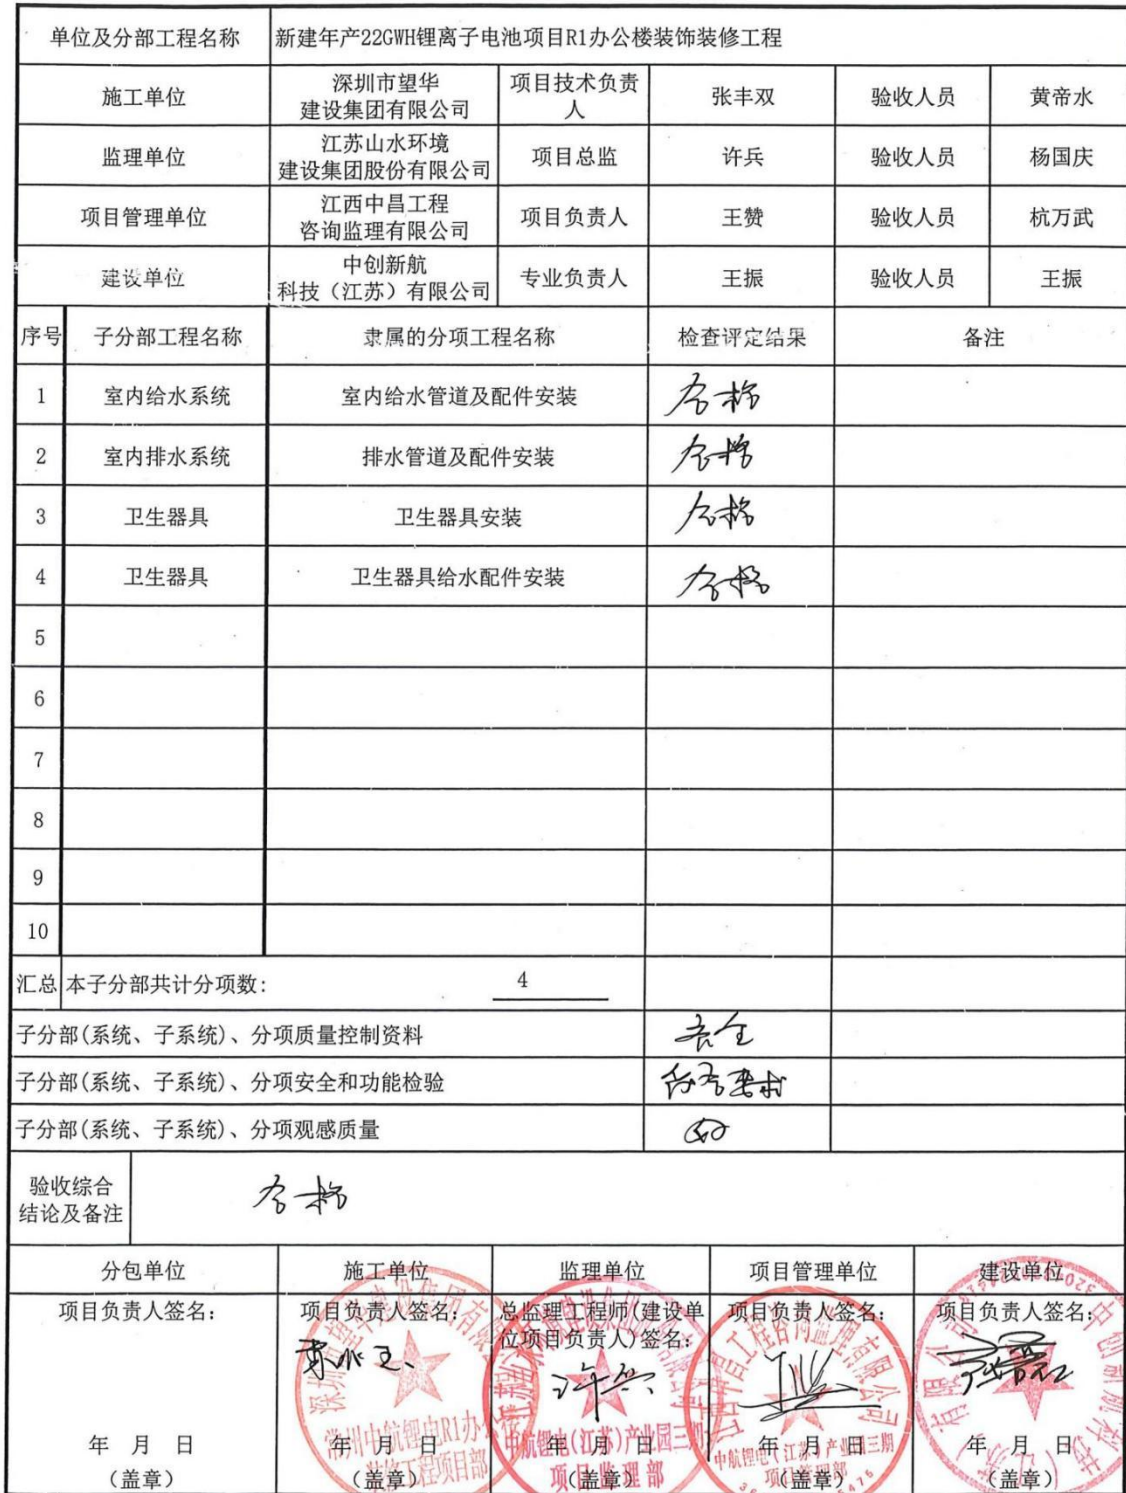 单位及分部工程名称 新建年产22GWH锂离子电池项目R1办公楼装饰装修工程
施工单位 深圳市望华建设集团有限公司 项目技术负责人 张丰双 验收人员 黄帝水
监理单位 江苏山水环境建设集团股份有限公司 项目总监 许兵 验收人员 杨国庆
项目管理单位 江西中昌工程咨询监理有限公司 项目负责人 王赞 验收人员 杭万武
建设单位 中创新航科技（江苏）有限公司 专业负责人 王振 验收人员 王振
序号 子分部工程名称 隶属的分项工程名称 检查评定结果 备注
1 室内给水系统 室内给水管道及配件安装 合格
2 室内排水系统 排水管道及配件安装 合格
3 卫生器具 卫生器具安装 合格
4 卫生器具 卫生器具给水配件安装 合格
5
6
7
8
9
10
汇总 本子分部共计分项数: 4
子分部(系统、子系统)、分项质量控制资料 齐全
子分部(系统、子系统)、分项安全和功能检验 符合要求
子分部(系统、子系统)、分项观感质量 好
验收综合结论及备注 合格
分包单位 施工单位 监理单位 项目管理单位 建设单位
项目负责人签名: 项目负责人签名: 总监理工程师(建设单位项目负责人)签名: 项目负责人签名: 项目负责人签名:
许兵
年 月 日 年 月 日 年 月 日 年 月 日 年 月 日
（盖章） （盖章） （盖章） （盖章） （盖章）
常州中航锂电R1办公楼装修工程项目部
中航锂电(江苏)产业园三期
项目监理部
中航锂电(江苏)产业园三期
项目管理部